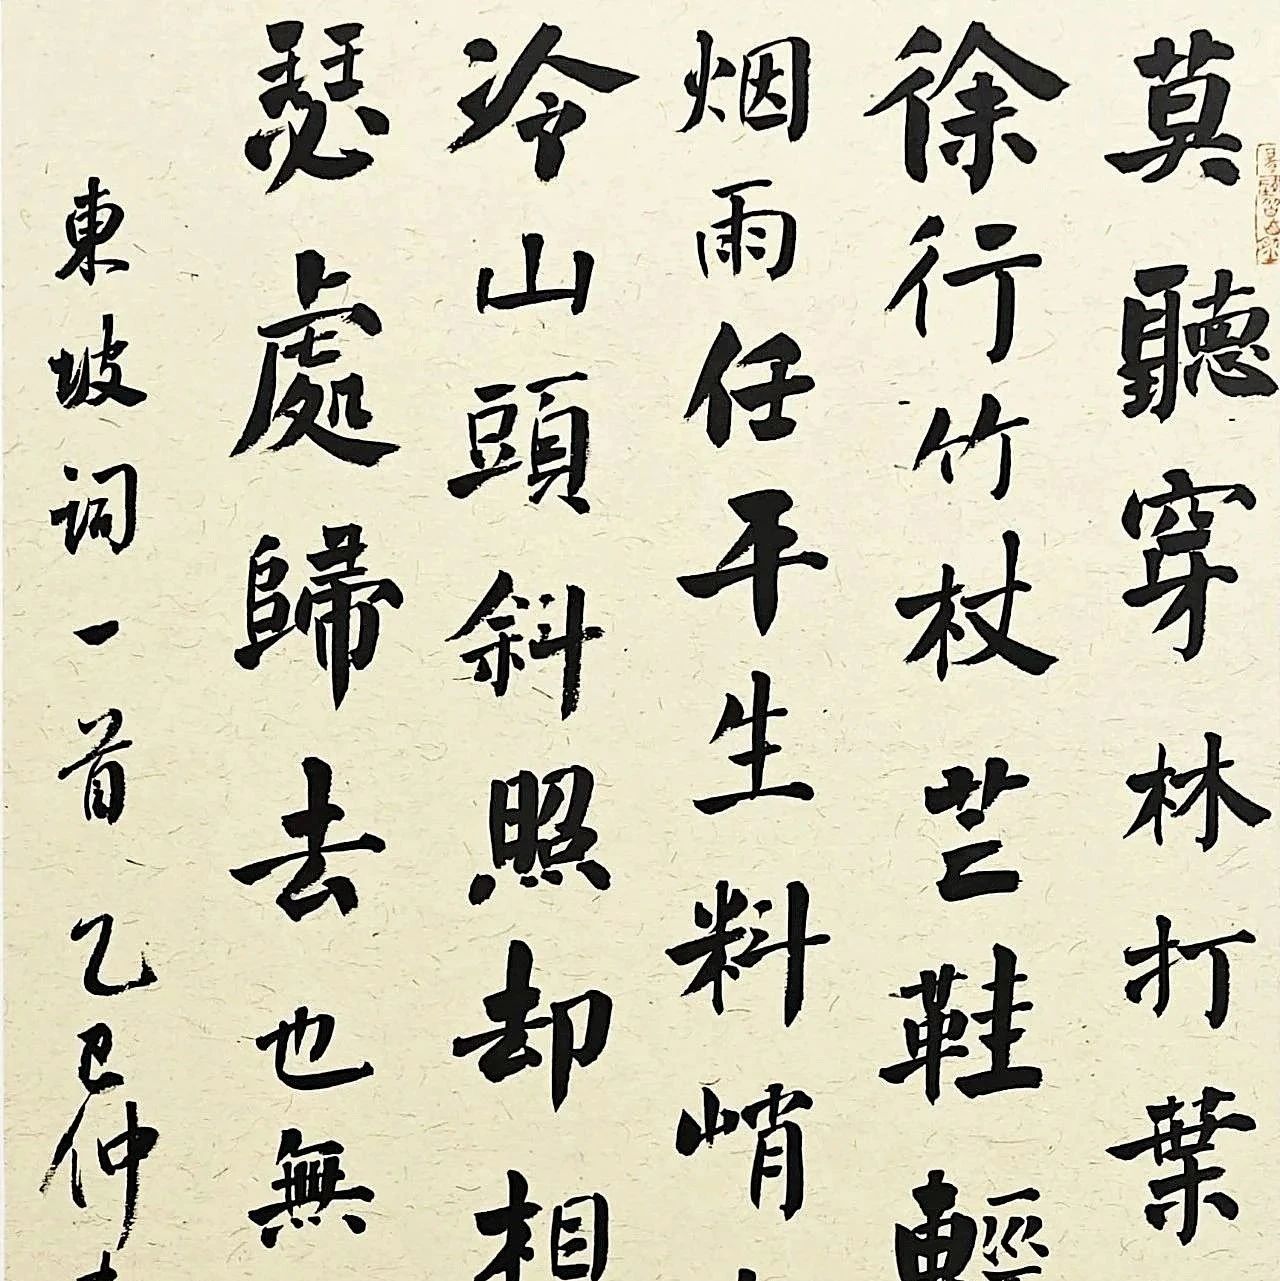 莫聽穿林打葉
徐行竹杖芒鞋輕
烟雨任平生料峭
冷山頭斜照却相
瑟處歸去也無
東坡詞一首乙巳仲